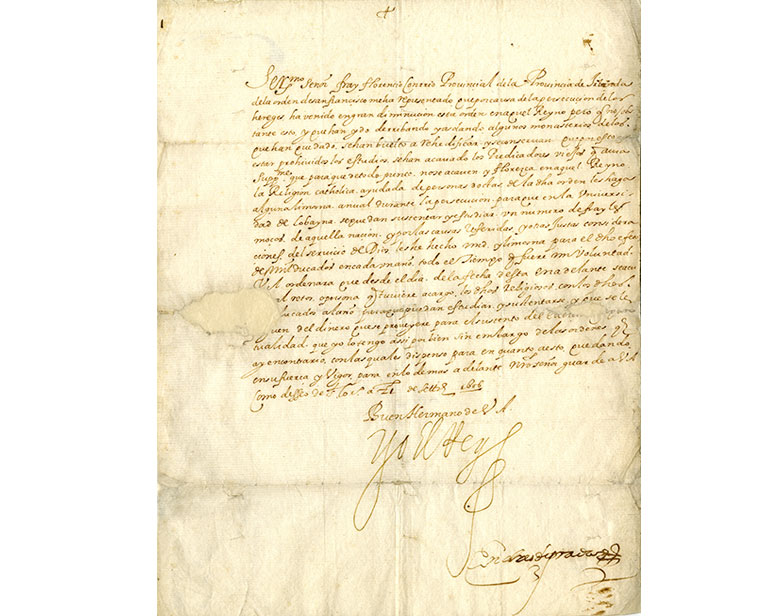 Ser.mo Señor fray florencio Conrrio Provincial de la Provincia de Irlanda
de la orden de san francisco me ha representado que por causa de la persecucion de los
hereges, ha venido en gran diminucion esta orden en aquel Reyno pero que no obs
tante esto, y que han ydo derribando y asolando algunos monasterios de los
que han quedado, se han buelto a rehedificar, y se conservan. Que por estar
estar prohividos los estudios, se han acavado los Predicadores viejos
supp.me que para que de todo punto, no se acaven y florezca en aquel Reyno
la Religion catholica, ayudada de personas doctas de la dha orden les haga
alguna limosna annual durante la persecucion, para que en la Universi
dad de Lobayna se puedan sustentar y estudiar un numero de frayles
moços de aquella nacion, y por las causas referidas, y otras justas considera
ciones, del servicio de Dios les he hecho md. y limosna para el dho efeto
de Mil Ducados en cada un año, todo el tiempo q fuere mi Voluntad.
V. A. ordenara que desde el dia de la fecha desta en adelante se
al retor, o persona q tuviere a cargo, los dhos Religiosos con los dhos
ducados al año para que puedan estudiar, y sustentarse, y que se le
uen del dinero que se proveyere para el sustento del
tualidad, que yo lo tengo assi por bien sin embargo de las ordenes q
ay en contrario, con las quales dispenso para en quanto a esto, quedando
en su fuerça y vigor, para en lo de mas adelante Nro señor guarde a V. A.
como desseo de S. Lor.o a 21 de Sett.e 1606
Buen Hermano de V. A
Yo el Rey
Andres de prada